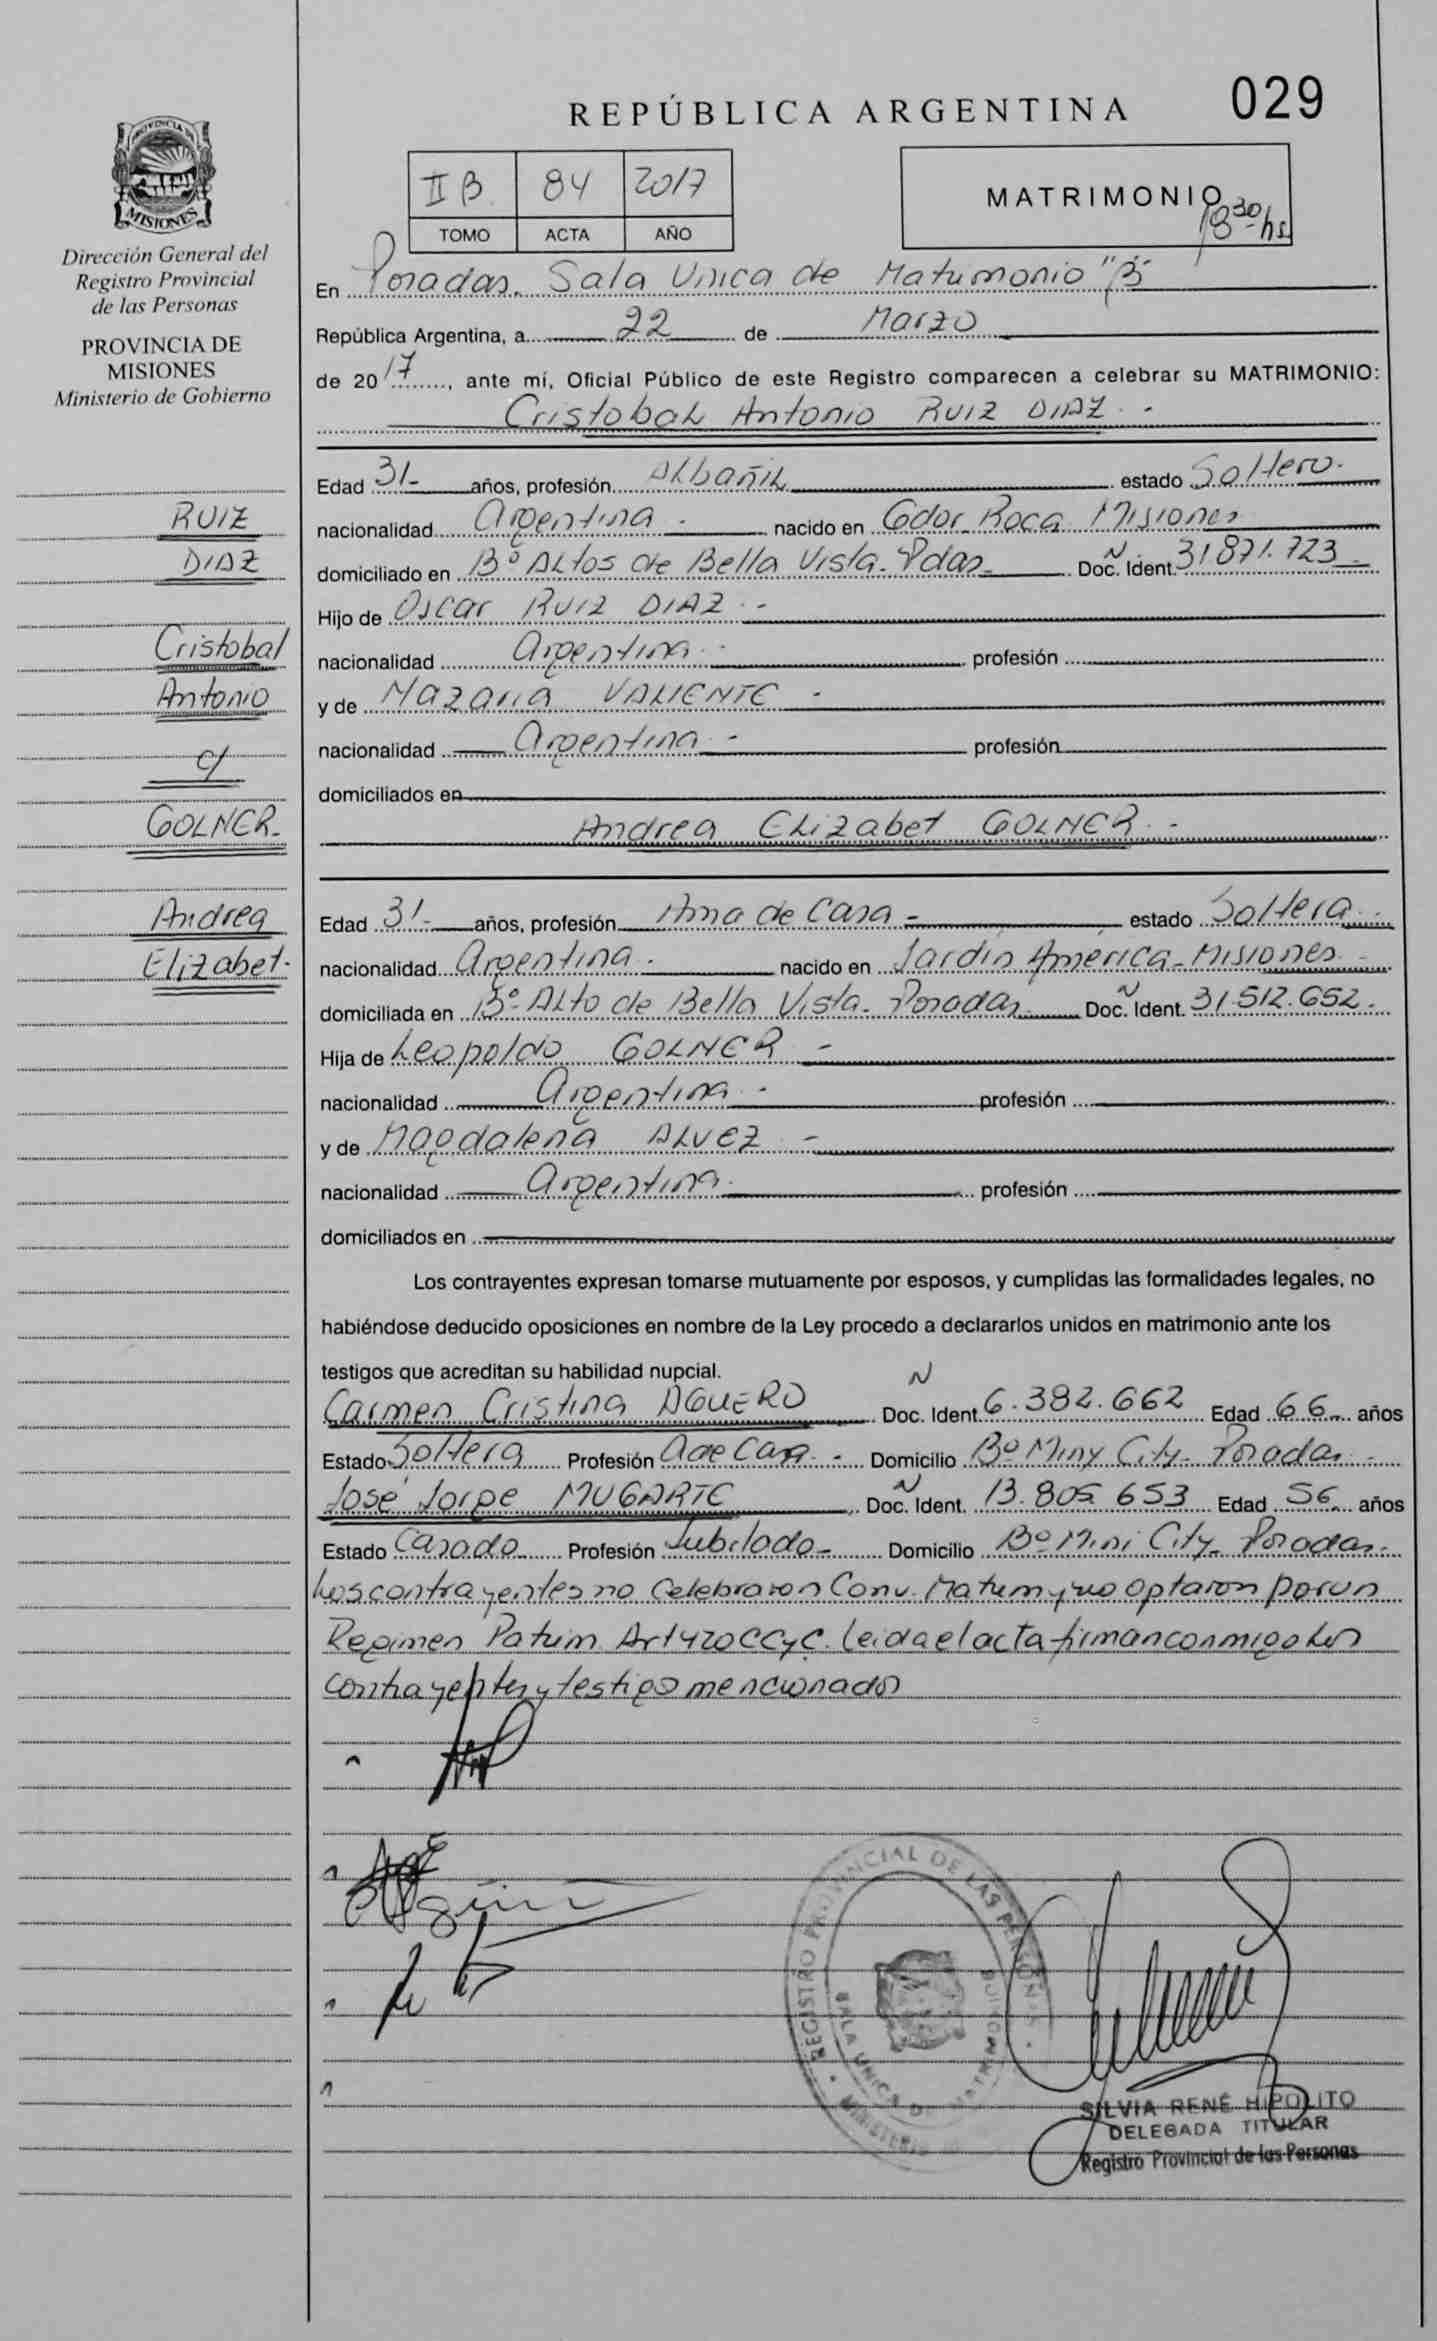 REPÚBLICA ARGENTINA
029
PROVINCIA DE
MISIONES
Dirección General del
Registro Provincial
de las Personas
PROVINCIA DE
MISIONES
Ministerio de Gobierno
II B 84 2017
TOMO ACTA AÑO
MATRIMONIO
18 30 hs
En Posadas. Sala Unica de Matrimonio "B"
República Argentina, a 22 de Marzo
de 2017, ante mí, Oficial Público de este Registro comparecen a celebrar su MATRIMONIO:
Cristobal Antonio RUIZ DIAZ.-
Edad 31- años, profesión Albañil estado Soltero.
nacionalidad Argentina.- nacido en Gdor Roca Misiones
domiciliado en Bº Altos de Bella Vista. Pdas- Doc. N Ident. 31 871.723-
Hijo de Oscar RUIZ DIAZ.-
nacionalidad Argentina.- profesión
y de VALIENTE.-
nacionalidad Argentina.- profesión
domiciliados en
Andrea Elizabet GOLNER.-
Edad 31- años, profesión Ama de Casa- estado Soltera.
nacionalidad Argentina.- nacido en Jardin América-Misiones.-
domiciliada en Bº Alto de Bella Vista- Posadas- Doc. N Ident. 31.512.652.
Hija de Leopoldo GOLNER-
nacionalidad Argentina.- profesión
y de Magdalena ALVEZ.-
nacionalidad Argentina. profesión
domiciliados en
RUIZ
DIAZ
Cristobal
Antonio
c/
GOLNER.
Andrea
Elizabet.
Los contrayentes expresan tomarse mutuamente por esposos, y cumplidas las formalidades legales, no
habiéndose deducido oposiciones en nombre de la Ley procedo a declararlos unidos en matrimonio ante los
testigos que acreditan su habilidad nupcial.
Carmen Cristina AGUERO Doc. N Ident. 6.382.662 Edad 66 años
Estado Soltera Profesión A de Casa.- Domicilio Bº Miny City- Posadas-
José Jorge MUGARTE Doc. N Ident. 13.805 653 Edad 56 años
Estado Casado Profesión Jubilado- Domicilio Bº Mini City- Posadas-
Los contrayentes no Celebraron Conv. Matrim y no optaron por un
Regimen Patrim. Art 420 CCyC. Leida el acta firman conmigo los
contrayentes y testigo mencionados
REGISTRO PROVINCIAL DE LAS PERSONAS
SALA UNICA DE MATRIMONIO
MINISTERIO
SILVIA RENÉ HIPOLITO
DELEGADA TITULAR
Registro Provincial de las Personas